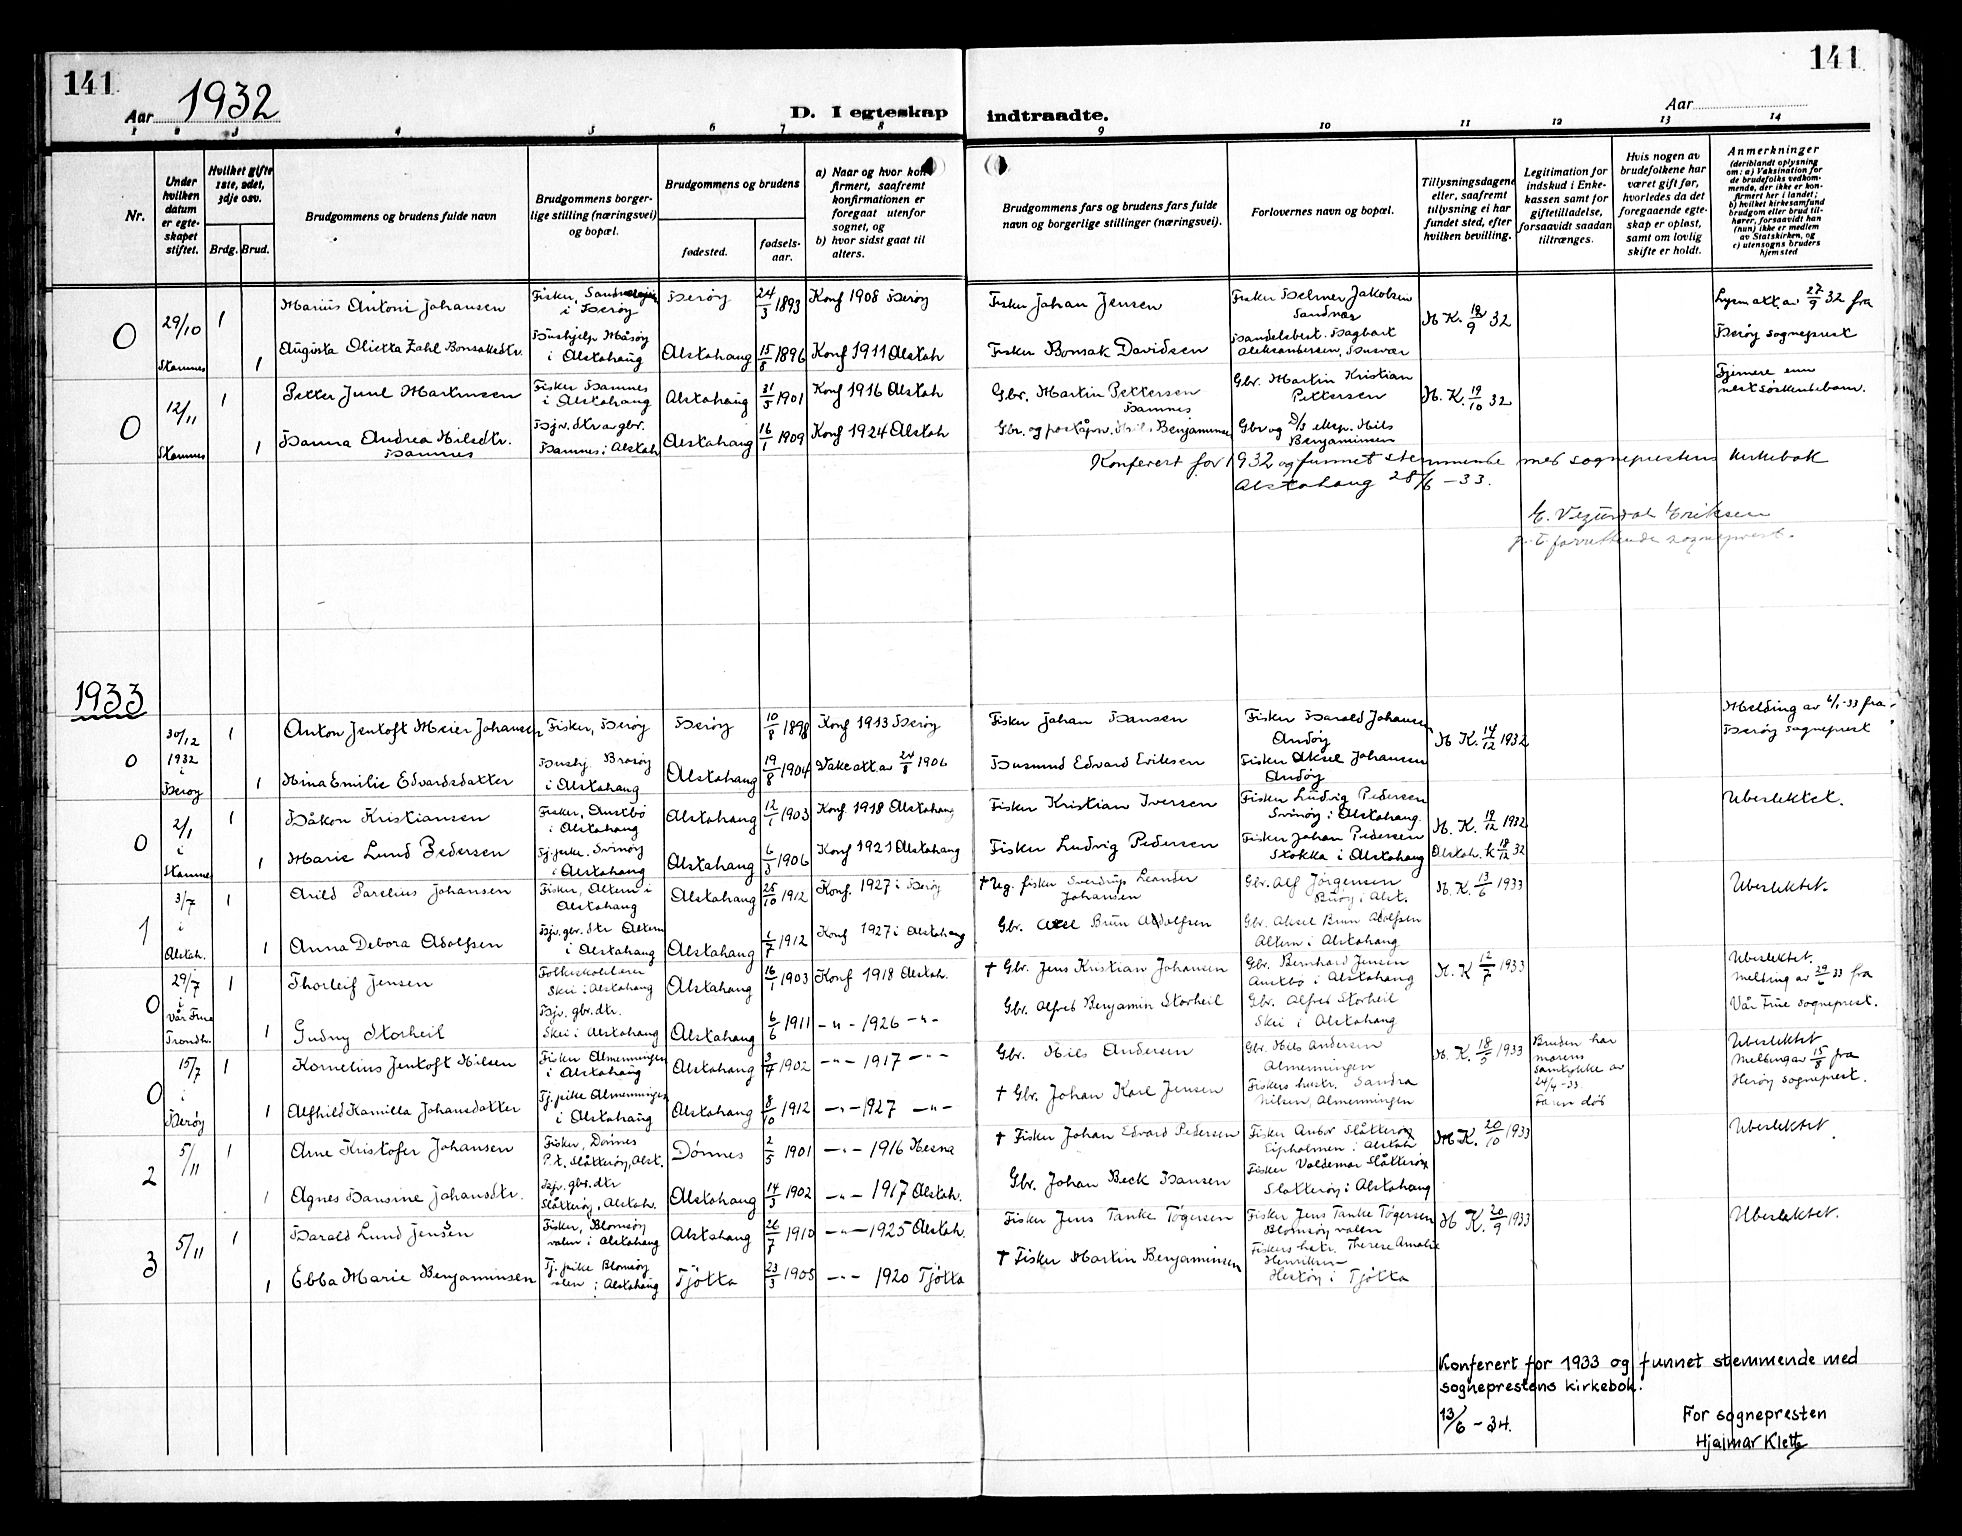 141
141
Aar 1932
D. I egteskap indtraadte.
Aar
1 2 3 4 5 6 7 8 9 10 11 12 13 14
Nr.
Under hvilken datum er egteskapet stiftet.
Hvilket gifte 1ste, 2det, 3dje osv.
Brdg. Brud.
Brudgommens og brudens fulde navn
Brudgommens borgerlige stilling (næringsvei) og bopæl.
Brudgommens og brudens
fødested.
fødselsaar.
a) Naar og hvor konfirmert, saafremt konfirmationen er foregaat utenfor sognet, og
b) hvor sidst gaat til alters.
Brudgommens fars og brudens fars fulde navn og borgerlige stillinger (næringsvei).
Forlovernes navn og bopæl.
Tillysningsdagene eller, saafremt tillysning ei har fundet sted, efter hvilken bevilling.
Legitimation for indskud i Enkekassen samt for giftetilladelse, forsaavidt saadan tiltrænges.
Hvis nogen av brudefolkene har været gift før, hvorledes da det foregaaende egteskap er opløst, samt om lovlig skifte er holdt.
Anmerkninger
(deriblandt oplysning om: a) Vaksination for de brudefolks vedkommende, der ikke er konfirmert her i landet; b) hvilket kirkesamfund brudgom eller brud tilhører, forsaavidt han (hun) ikke er medlem av Statskirken, og c) utensogns bruders hjemsted
0 29/10 Stamnes 1 Marius Antoni Johansen Fisker, i Herøy Herøy 24/3 1893 Konf 1908 Herøy Fisker Johan Jensen Fisker Helmer Jakobsen Sandvær N K. 19/9 32 Lysn.att.av 27/9 32 fra Herøy sogneprest
1 Augusta Olietta Zahl Bonsaksdtr. Hushjelp Måsøy i Alstahaug Alstahaug 15/8 1896 Konf 1911 Alstah Fisker Bonsak Davidsen Handelsbest. Dagbart Aleksandersen, Husvær
0 12/11 Stamnes 1 Petter Juul Martinsen Fisker Hamnes i Alstahaug Alstahaug 31/5 1901 Konf 1916 Alstah Gbr. Martin Pettersen Hamnes Gbr. Martin Kristian Pettersen N. K. 19/10 32 Fjernere enn nest søskendebarn.
1 Hanna Andrea Nilsdtr. Hamnes Hjv. dtr av gbr. Hamnes i Alstah Alstahaug 16/1 1909 Konf 1924 Alstah Gbr. og poståpn. Nils Benjaminsen Gbr og D/S eksp. Nils Benjaminsen
Konferert for 1932 og funnet stemmende med sogneprestens kirkebok
Alstahaug 28/6 - 33.
Eriksen
p. t. forrettende sogneprest.
1933
0 30/12 1932 i Herøy 1 Anton Jentoft Meier Johansen Fisker, Herøy Herøy 10/8 1898 Konf 1913 Herøy Fisker Johan Hansen Fisker Harald Johansen Andøy N K. 14/12 1932 Melding av 6/1-33 fra Herøy sogneprest
1 Nina Emilie Edvardsdatter Hushj. Brasøy i Alstahaug Alstahaug 19/8 1904 Vakc att av 24/8 1906 Husmand Edvard Eriksen Fisker Aksel Johansen Andøy
0 2/1 i Stamnes 1 Håkon Kristiansen Fisker, Austbø i Alstahaug Alstahaug 12/1 1903 Konf. 1918 Alstahaug Fisker Kristian Iversen Fisker Ludvig Pedersen Svinøy i Alstahaug N. K. 19/12 1932 Ubeslektet.
1 Marie Lund Pedersen Tj.pike. Svinøy i Alstahaug Alstahaug 6/3 1906 Konf 1921 Alstahaug Fisker Ludvig Pedersen Fisker Johan Pedersen Stokka i Alstahaug Alstah. k 18/12 32
1 3/7 i Alstah. 1 Arild Parelius Johansen Fisker, Altern i Alstahaug Alstahaug 25/10 1912 Konf. 1927 i Herøy † Ug. fisker Sverdrup Leander Johansen Gbr. Alf Jørgensen Buøy i Alst. N. K. 13/6 1933 Ubeslektet.
1 Anna Debora Adolfsen Hjv. gbr. dtr Altern i Alstahaug Alstahaug 1/7 1912 Konf 1927 i Alstahaug Gbr. Aksel Brun Adolfsen Gbr. Aksel Brun Adolfsen Altern i Alstahaug
0 29/7 i Vår Frue Trondh. 1 Thorleif Jensen Folkeskolelærer Skei i Alstahaug Alstahaug 16/1 1903 Konf 1918 Alstah. † Gbr. Jens Kristian Johansen Gbr. Bernhard Jensen Austbø i Alstahaug N. K 12/7 1933 Ubeslektet. Melding av 29/6 33 fra Vår Frue sogneprest.
1 Gudny Storheil Hjv. gbr. dtr. Skei i Alstahaug Alstahaug 6/6 1911 -"- 1926 -"- Gbr. Alfred Benjamin Storheil Gbr. Alfred Storheil Skei i Alstahaug
0 15/7 i Herøy 1 Kornelius Jentoft Nilsen Fisker Almenningen i Alstahaug Alstahaug 3/7 1902 -"- 1917 -"- Gbr. Nils Andersen Gbr. Nils Andersen Almenningen N. K. 18/5 1933 Bruden har morens samtykke av 24/4-33 Faren død Ubeslektet Melding av 15/8 fra Herøy sogneprest.
1 Alfhild Kamilla Johansdatter Tj. pike Almenningen i Alstahaug Alstahaug 8/10 1912 -"- 1927 -"- † Gbr. Johan Karl Jensen Fiskers hustr. Sandra Nilsen, Almenningen
2 5/11 1 Arne Kristofer Johansen Fisker, Dønnes P.t. Slåtterøy, Alst. Dønnes 2/5 1901 -"- 1916 Nesna † Fisker Johan Edvard Pedersen Fisker Slåtterøy Alstah N K. 20/10 1933 Ubeslektet
1 Agnes Hansine Johansdtr. Hjv. gbr. dtr Slåtterøy, Alstah. Alstahaug 14/3 1902 -"- 1917 Alstah. Gbr. Johan Beck Hansen Fisker Valdemar Slåtterøy Slåtterøy i Alstahaug
3 5/11 1 Harald Lund Jensen Fisker, Blomsøyvalen i Alstahaug Alstahaug 26/7 1910 -"- 1925 Alstah. Fisker Jens Tanke Tøgersen Fisker Jens Tanke Tøgersen Blomsøyvalen N K. 20/9 1933 Ubeslektet.
1 Ebba Marie Benjaminsen Tj. pike Blomsøyvalen i Alstahaug Tjøtta 23/3 1905 -"- 1920 Tjøtta † Fisker Martin Benjaminsen Fiskers hstr. Therese Amalie Henriksen Hestøy i Tjøtta
Konferert for 1933 og funnet stemmende med
sogneprestens kirkebok.
13/6 - 34.
For sognepresten
Hjalmar Klette